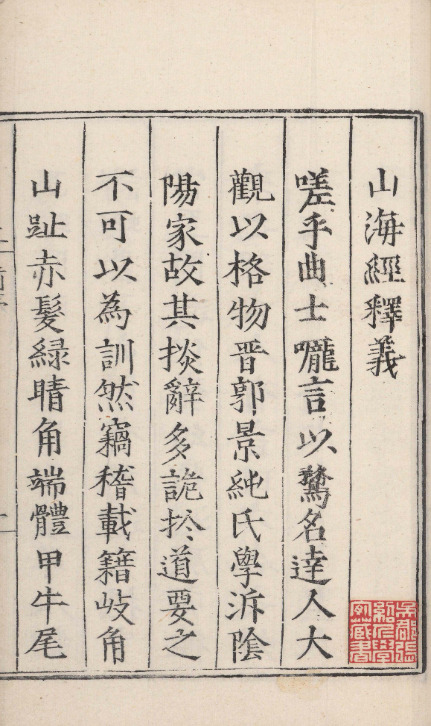 山海經釋義
嗟乎曲士嚨言以驁名達人大
觀以格物晋郭景純氏學泝陰
陽家故其掞辭多詭扵道要之
不可以為訓然竊稽載籍岐角
山趾赤髮緑睛角端體甲牛尾